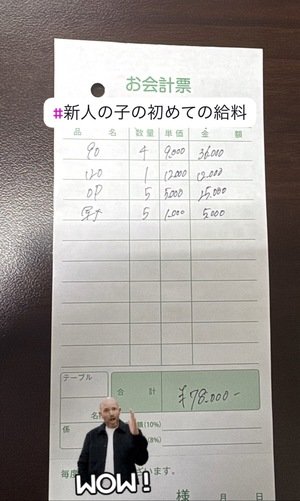 お会計票
#新人の子の初めての給料
品 名 数量 単価 金 額
90 4 9,000 36,000
120 1 12,000 12,000
OP 5 5,000 25,000
5 1,000 5,000
テーブル
合 計 ¥78,000-
係 名
額(10%)
(8%)
毎度 ざいます。
様 月 日
WOW!